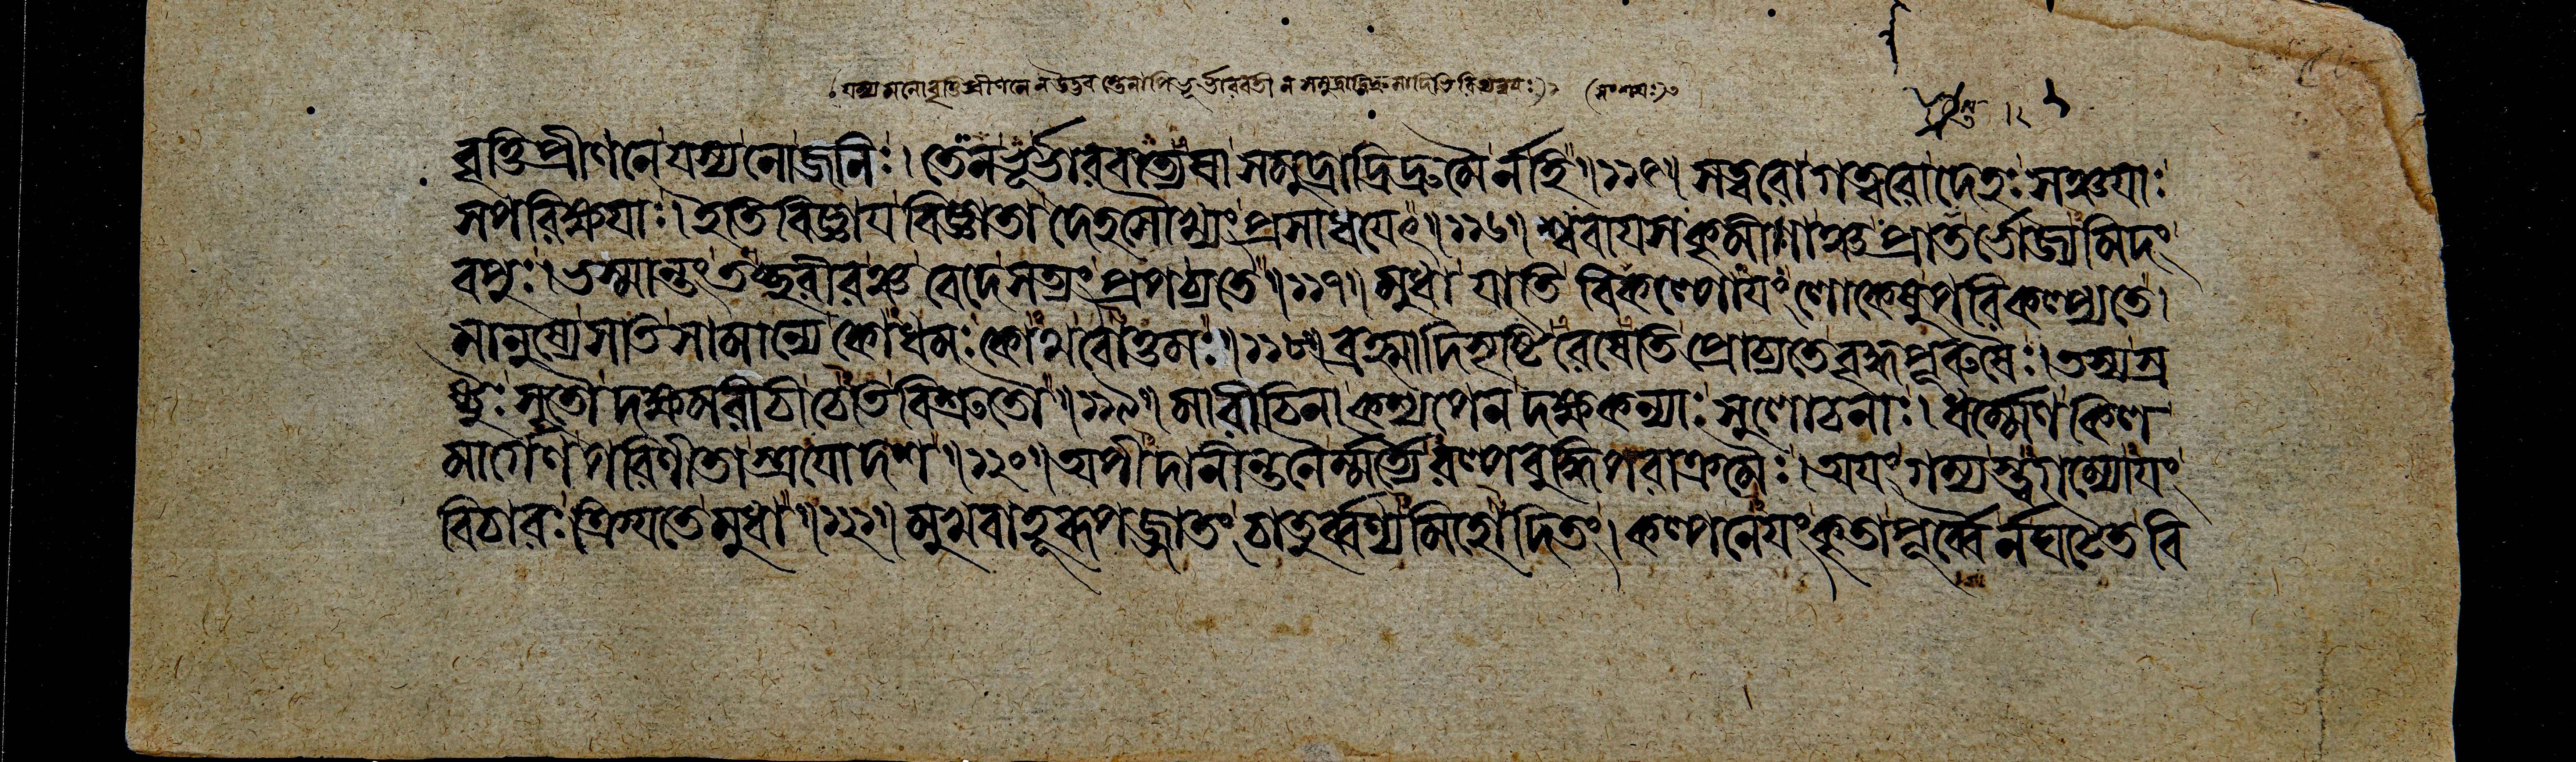 যস্য মনোবৃত্তিপ্রীণনে ন উদ্ভবস্তেনাপি ভূর্ভারবতী ন সমুদ্রাদ্রিদ্রুমাদিভিরিত্যন্বযঃ
বৃত্তিপ্রীণনে যস্য নো জনিঃ। তেন ভূর্ভারবত্যেষা সমুদ্রাদ্রিদ্রুমৈর্নহি॥১১৫॥ সত্বরো গত্বরো দেহঃ সঞ্চযাঃ
সপরিক্ষযাঃ। ইতি বিজ্ঞায বিজ্ঞাতা দেহসৌখ্যং প্রসাধযেৎ॥১১৬॥ শ্ববাযসকৃমীণাঞ্চ প্রাতর্ভোজ্যমিদং
বপুঃ। ভস্মান্তং তচ্ছরীরঞ্চ বেদে সত্যং প্রপঠ্যতে॥১১৭॥ মুধা যাতি বিকল্পোযং লোকেষু পরিকল্প্যতে।
মানুষ্যে সতি সামান্যে কোধমঃ কোথ চোত্তমঃ॥১১৮॥ ব্রহ্মাদিসৃষ্টিরেষেতি প্রোচ্যতে বৃদ্ধপূরুষৈঃ। তস্য স্র
ষ্টুঃ সুতৌ দক্ষমরীচী চেতি বিশ্রুতৌ॥১১৯॥ মারীচিনা কশ্যপেন দক্ষকন্যাঃ সুলোচনাঃ। ধর্ম্মেণ কিল
মার্গেণ পরিণীতাস্ত্রযোদশ॥১২০॥ অপীদানীন্তনৈর্মর্ত্যৈরল্পবুদ্ধিপরাক্রমৈঃ। অযং গম্যস্ত্বগম্যোযং
বিচারঃ ক্রিযতে মুধা॥১২১॥ মুখবাহূরুপজ্জাতং চাতুর্ব্বর্ণ্যমিহোদিতং। কল্পনেযং কৃতা পূর্ব্বৈর্ন ঘটেত বি